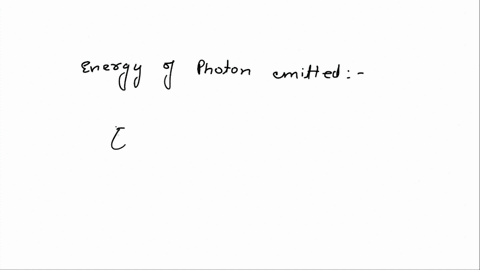 Energy of Photon emitted:-